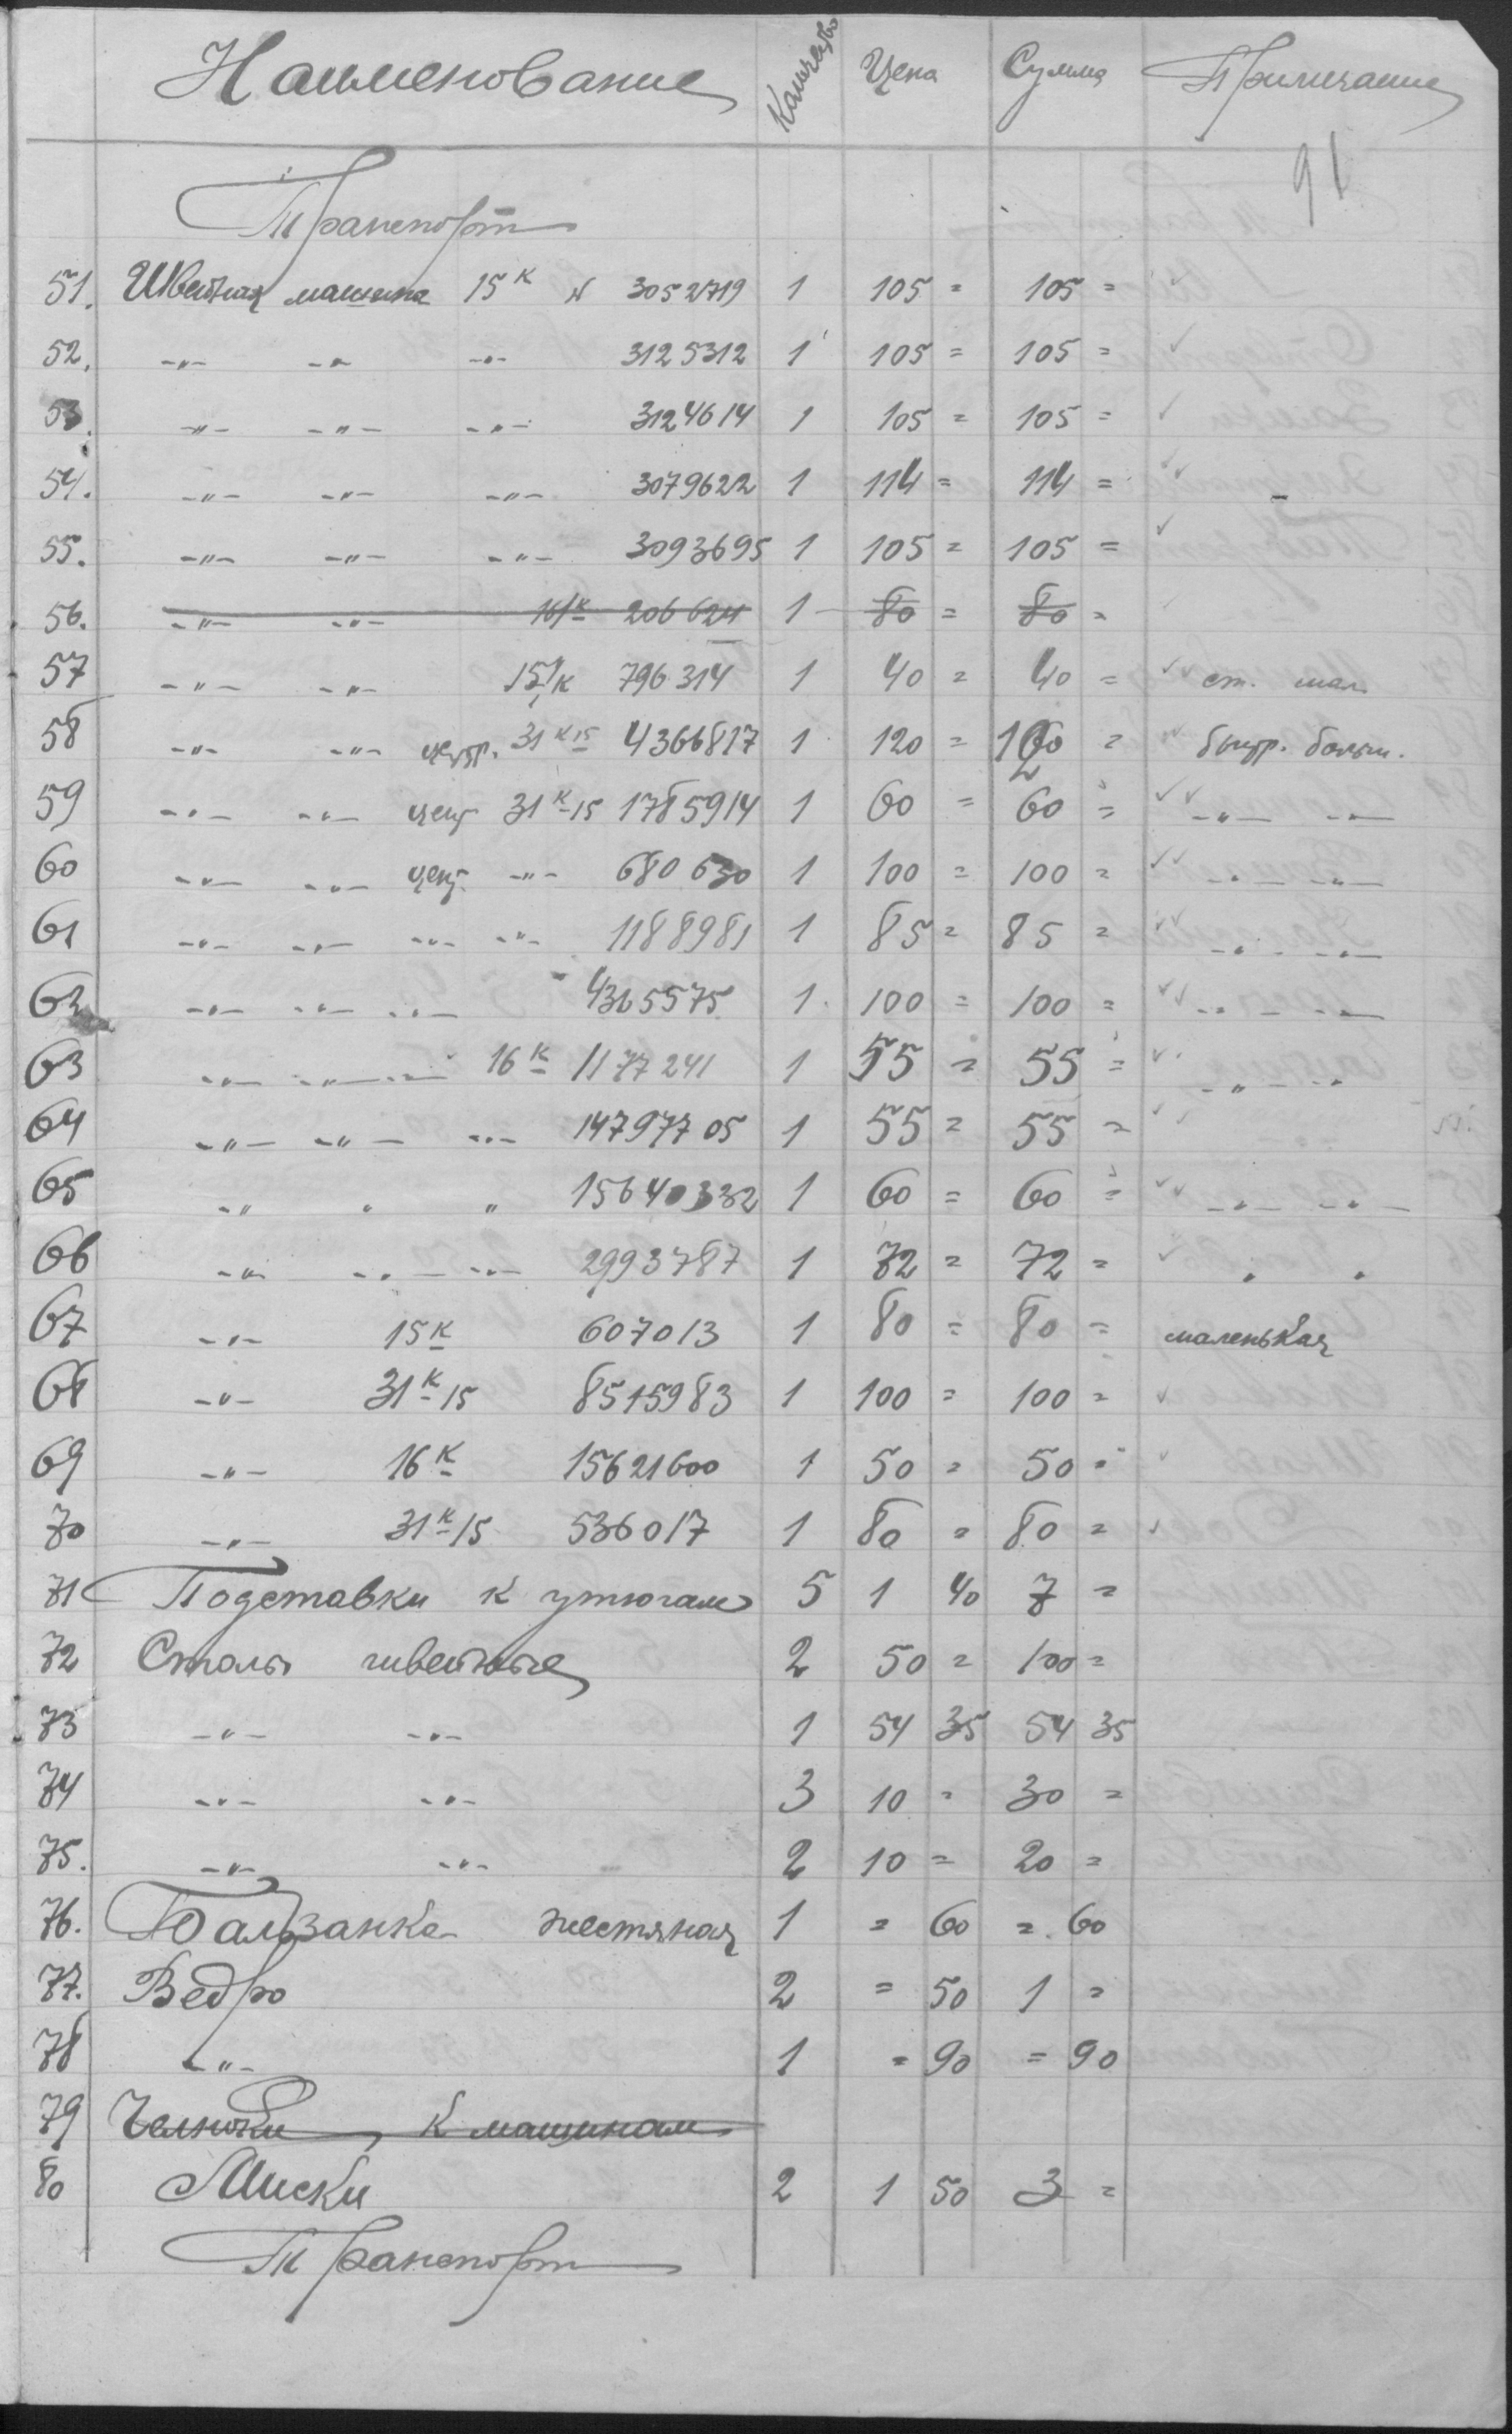 Наименование Количество Цена Сумма Примечание
91
Транспорт
51. Швейная машина 15к N 3052719 1 105 = 105 = ✓
52. -"- -"- -"- 3125312 1 105 = 105 = ✓
53. -"- -"- -"- 3124614 1 105 = 105 = ✓
54. -"- -"- -"- 3079622 1 114 = 114 = ✓✓ -
55. -"- -"- -"- 3093695 1 105 = 105 = ✓
56. -"- -"- 16/к 206624 1 80 = 80 = ✓
57 -"- -"- 15/к 796314 1 40 = 40 = ✓✓ ст. мал.
58 -"- -"- центр. 31к15 4366817 1 120 = 120 = ✓✓ больш.
59 -"- -"- цент 31к-15 1785914 1 60 = 60 = ✓✓ -"- -"-
60 -"- -"- цент. -"- 680630 1 100 = 100 = ✓✓ -"- -"-
61 -"- -"- -"- -"- 1188981 1 85 = 85 = ✓✓ -"- -"-
62 -"- -"- -"- 4365575 1 100 = 100 = ✓✓ -"- -"-
63 -"- -"- -"- 16к 1177241 1 55 = 55 = ✓✓ -"- -"-
64 -"- -"- -"- 14797705 1 55 = 55 = ✓✓
65 -"- " " 15640332 1 60 = 60 = ✓✓ -"- -"-
66 -"- -"- -"- 2993787 1 72 = 72 = ✓✓ " "
67 -"- 15к 607013 1 80 = 80 = маленькая
68 -"- 31к-15 8515983 1 100 = 100 = ✓
69 -"- 16к 15621600 1 50 = 50 = ✓
70 -"- 31к-15 536017 1 80 = 80 = ✓
71 Подставки к утюгам 5 1 40 7 =
72 Столы швейные 2 50 = 100 =
73 -"- -"- 1 54 35 54 35
74 -"- -"- 3 10 = 30 =
75. -"- -"- 2 10 = 20 =
76. Бальзанка жестяная 1 = 60 = 60
77. Ведро 2 = 50 1 =
78 -"- 1 = 90 = 90
79 Челноки к машинам
80 Миски 2 1 50 3 =
Транспорт